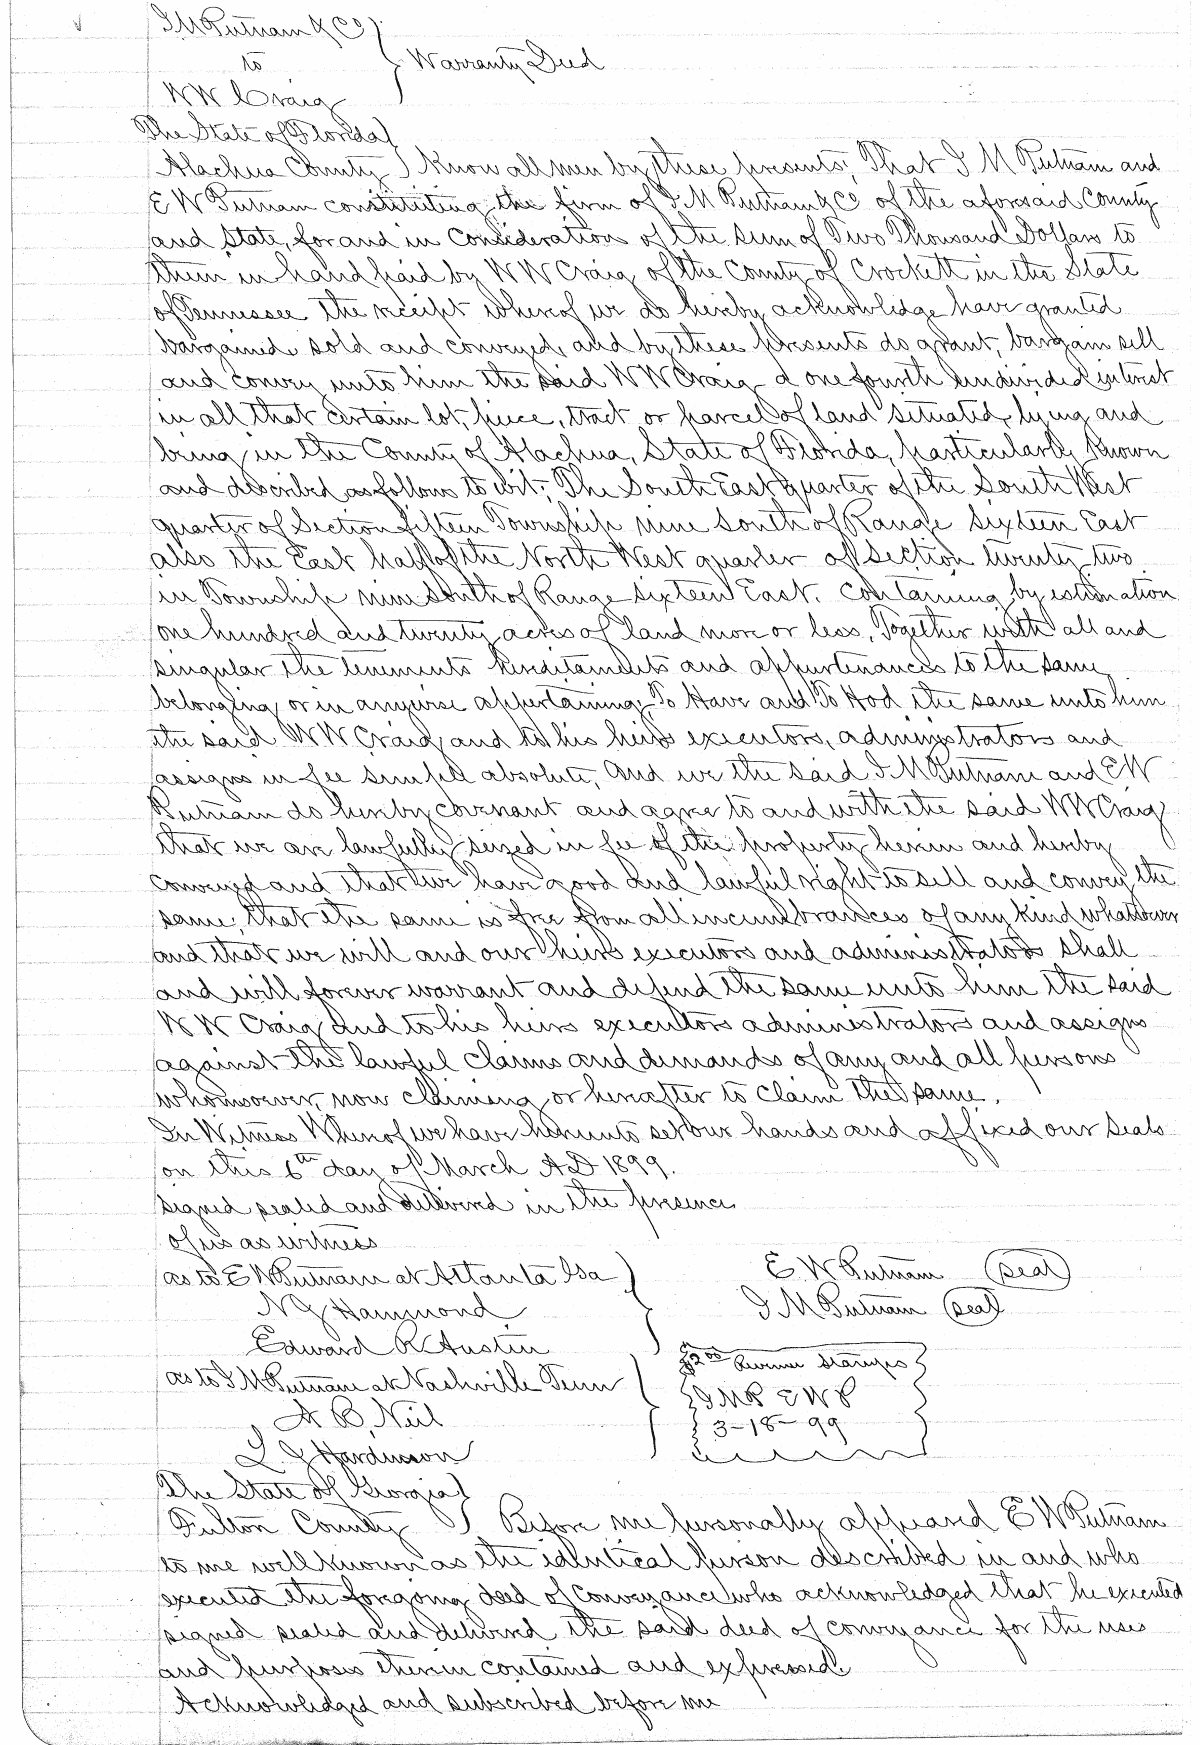 J M Putnam & Co
to } Warranty Deed
W W Craig
The State of Florida
Alachua County } Know all men by these presents; That J M Putnam and
E W Putnam constituting the firm of J M Putnam & Co of the aforesaid County
and State, for and in consideration of the sum of Two Thousand Dollars to
them in hand paid by W W Craig of the County of Crockett in the State
of Tennessee the receipt whereof we do hereby acknowledge have granted
bargained sold and conveyed, and by these presents do grant, bargain sell
and convey unto him the said W W Craig a one fourth undivided interest
in all that certain lot, piece, tract or parcel of land situated, lying and
being in the County of Alachua, State of Florida, particularly known
and described as follows to wit; The South East quarter of the South West
quarter of Section fifteen Township nine South of Range sixteen East
also the East half of the North West quarter of section twenty two
in Township nine South of Range sixteen East. Containing by estimation
one hundred and twenty acres of land more or less, Together with all and
singular the tenements hereditaments and appurtenances to the same
belonging or in anywise appertaining, To Have and To Hod the same unto him
the said W W Craig and to his heirs executors, administrators and
assigns in fee simple absolute, And we the said J M Putnam and E W
Putnam do hereby covenant and agree to and with the said W W Craig
that we are lawfully seized in fee of the property herein and hereby
conveyed and that we have good and lawful right to sell and convey the
same, that the same is free from all incumbrances of any kind whatever
and that we will and our heirs executors and administrators shall
and will forever warrant and defend the same unto him the said
W W Craig and to his heirs executors administrators and assigns
against the lawful claims and demands of any and all persons
whomsoever, now claiming or hereafter to claim the same.
In Witness Whereof we have hereunto set our hands and affixed our seals
on this 6th day of March AD 1899.
signed sealed and delivered in the presence
of us as witness
as to E W Putnam at Atlanta Ga } E W Putnam (seal)
N J Hammond J M Putnam (seal)
Edward R Austin
$2 00 Revenue Stamps
as to J M Putnam at Nashville Tenn } J M P E W P
A B, Neil 3-18-99
L J Hardinson
The State of Georgia
Fulton County } Before me personally appeared E W Putnam
to me well known as the identical person described in and who
executed the foregoing deed of conveyance who acknowledged that he executed
signed sealed and delivered the said deed of conveyance for the uses
and purposes therein contained and expressed.
Acknowledged and subscribed before me